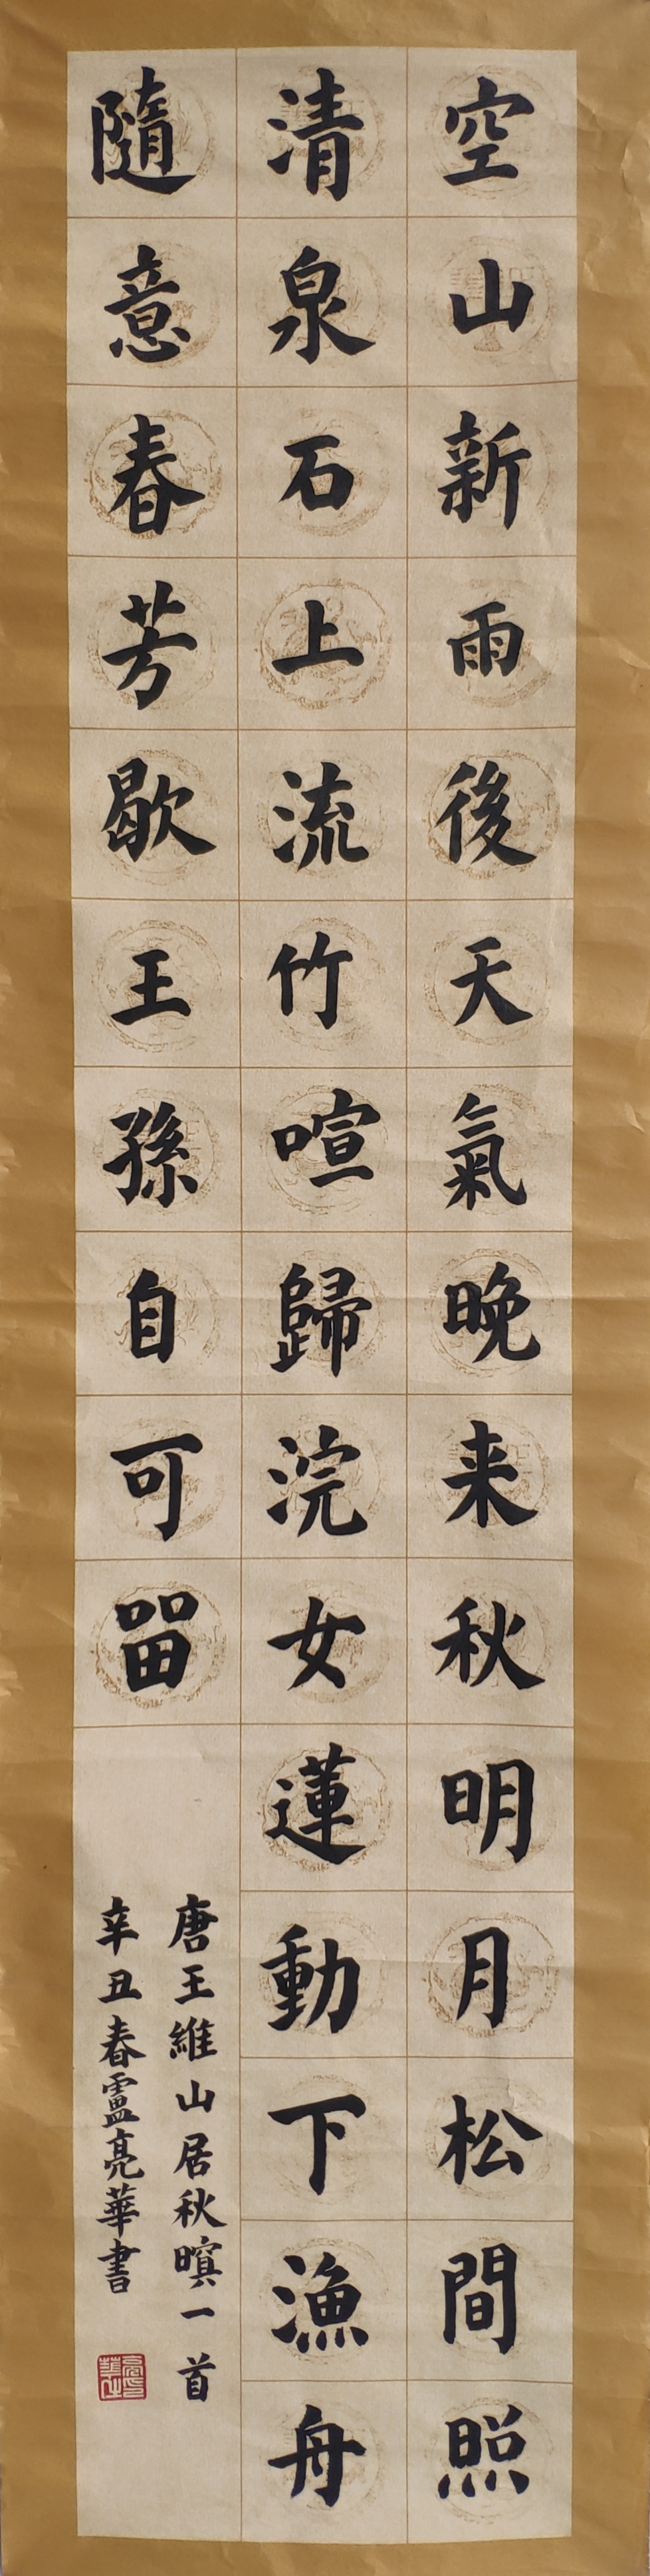 空山新雨後天氣晚来秋明月松間照
清泉石上流竹喧歸浣女蓮動下漁舟
隨意春芳歇王孫自可留
唐王維山居秋暝一首
辛丑春盧亮華書